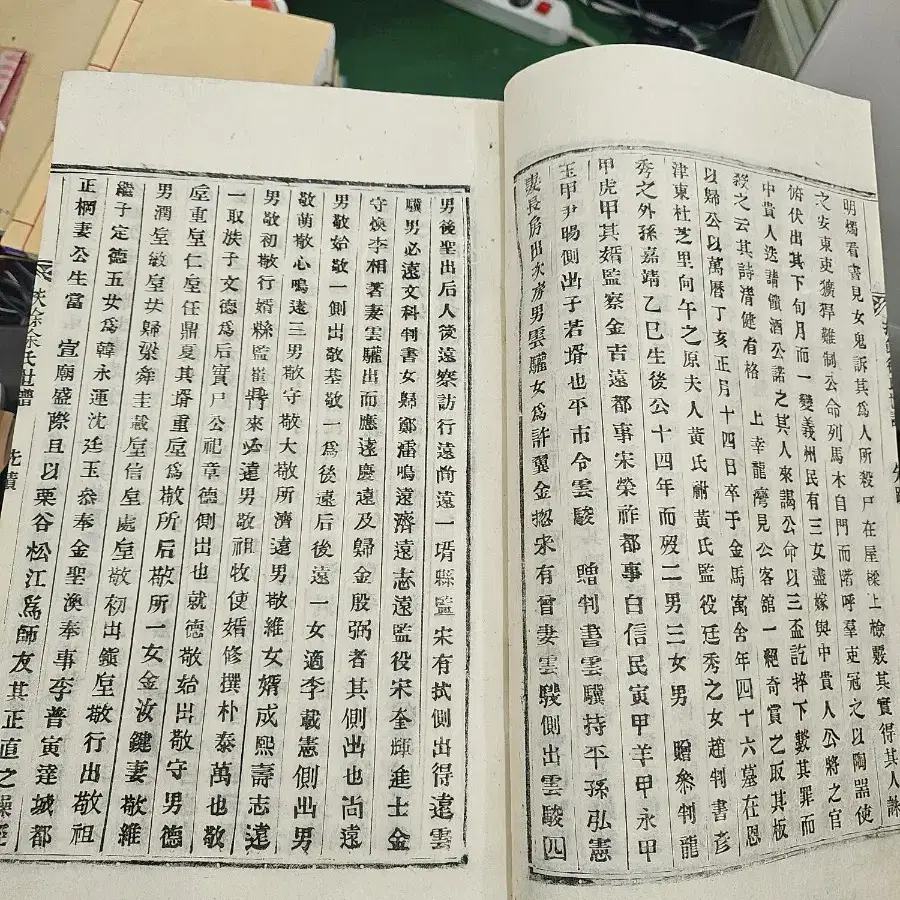 明燭看書見女鬼訴其爲人所殺尸在屋樑上檢覈其實得其人誅
之安東吏獷猂難制公命列馬木自門而階呼羣吏冠之以陶器使
俯伏出其下旬月而一變義州民有三女盡嫁與中貴人公將之官
中貴人迭請饋酒公諾之其人來謁公命以三盃訖捽下數其罪而
殺之云其詩淸健有格 上幸龍灣見公客舘一絕奇賞之取其板
以歸公以萬曆丁亥正月十四日卒于金馬寓舍年四十六墓在恩
津東杜芝里向午之原夫人黃氏祔黃氏監役廷秀之女趙判書彥
秀之外孫嘉靖乙巳生後公十四年而歿二男三女男 贈參判龍
甲虎甲其婿監察金吉遠都事宋榮祚都事白信民寅甲羊甲永甲
玉甲尹暘側出子若壻也平市令雲駿 贈判書雲驥持平孫弘憲
妻長房出次房男雲驩女爲許翼金㧾宋有曾妻雲騣側出雲駿四
男後聖出后人後遠察訪行遠尙遠一壻縣監宋有拭側出得遠雲
驥男必遠文科判書女歸鄭雷鳴遠濟遠志遠監役宋奎煙進士金
守煥李相著妻雲驩出而應遠慶遠及歸金殷弼者其側出也尙遠
男敬始敬一側出敬基敬一爲後遠后後遠一女適李載憲側出男
敬萌敬心鳴遠三男敬守敬大敬所濟遠男敬維女婿成熙壽志遠
男敬初敬行婿縣監崔
來必達男敬祖牧使婿修撰朴泰萬也敬
一取族子文德爲后實尸公祀章德側出也就德敬始出敬守男德
垕重垕仁垕任鼎夏其壻重垕爲敬所后敬所一女金汝鍵妻敬維
男潤垕敏垕女歸梁舜圭載垕信垕處垕敬初出鎭垕敬行出敬祖
繼子定德五女爲韓永運沈廷玉叅奉金聖渙奉事李普寅達城都
正棡妻公生當 宣廟盛際且以栗谷松江爲師友其正直之操
氏世譜